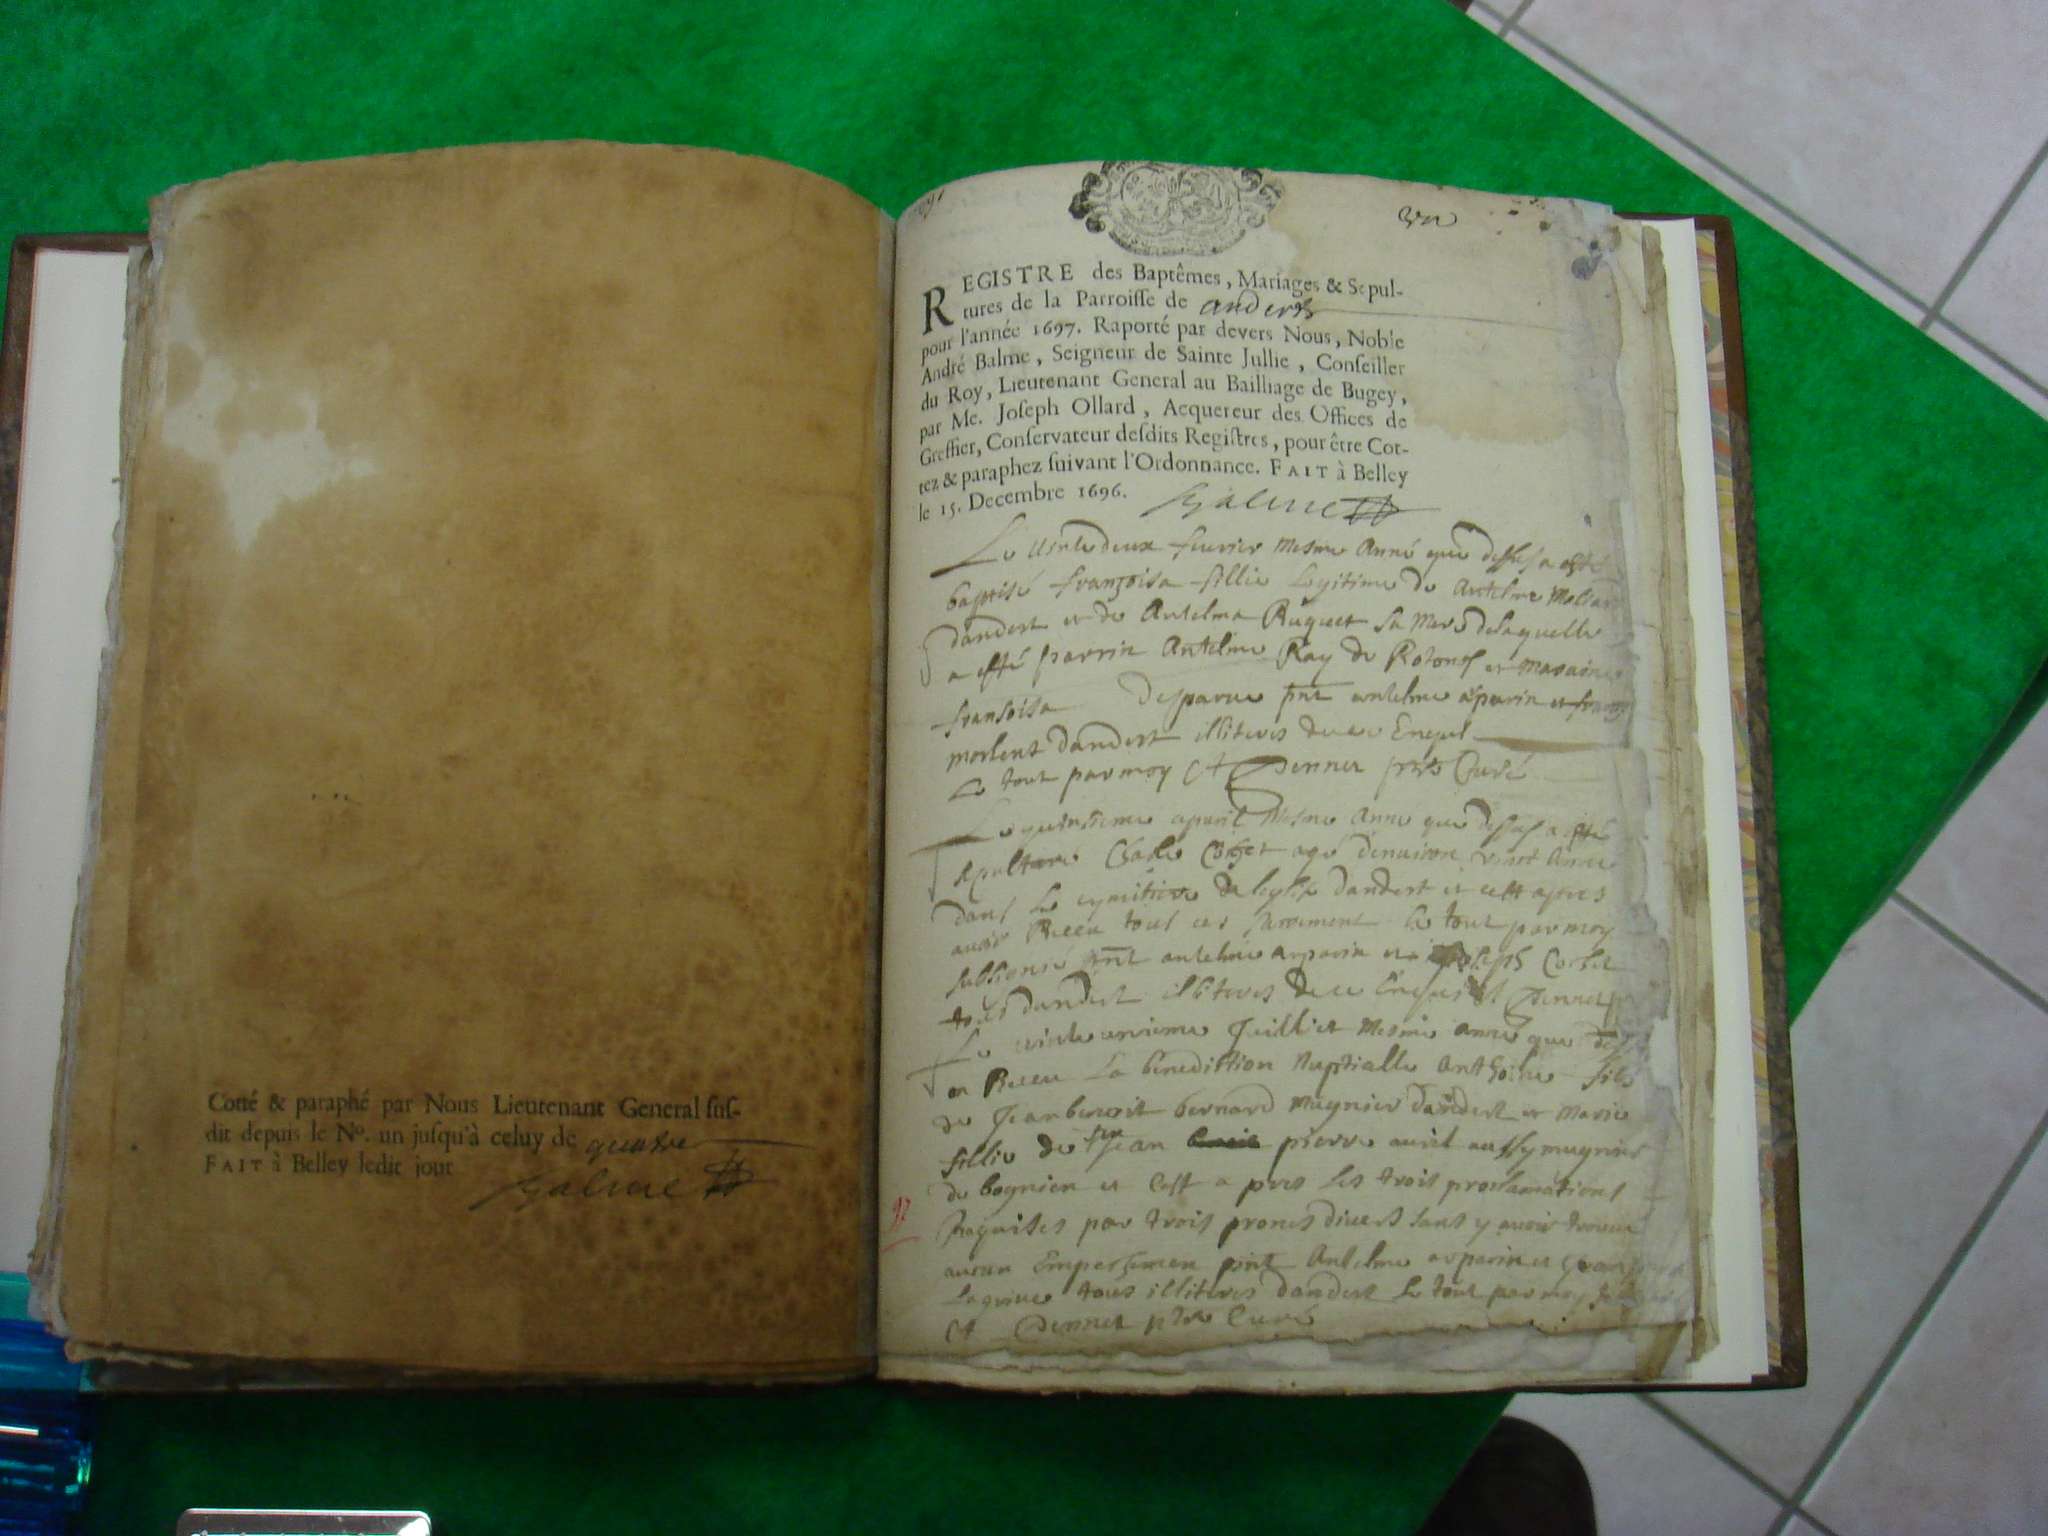 Cotté & paraphé par Nous Lieutenant General suf-
dit depuis le No. un jusqu'à celuy de quatre
FAIT à Belley ledit jour
Balme
un
REGISTRE des Baptêmes, Mariages & Sepul-
tures de la Parroisse de andert
pour l'année 1697. Raporté par devers Nous, Noble
André Balme, Seigneur de Sainte Jullie, Conseiller
du Roy, Lieutenant General au Bailliage de Bugey,
par Me. Joseph Ollard, Acquereur des Offices de
Greffier, Conservateur desdits Registres, pour être Cot-
tez & paraphez suivant l'Ordonnance. FAIT à Belley
le 15. Decembre 1696. Balme
Le vinte deux feurier mesme Anné que dessus a esté
baptisé françoisa fillie legitime de Antelme
dandert et de Antelma Ruquet sa Mere de laquelle
a esté parrin Antelme Ray de et maraine
fransoisa pnt antelme aparin et
dandert illiteres de ce Enquis
Le tout par moy Pennet Curé
Le quinsieme apuril mesme Anné que dessus a esté
sepulturé Corbet agé denuiron vint Annee
dans le cymitiere de leglise dandert et cest apres
auoir Receu tout ces sacrement le tout par moy
pnt antelme arparin et Joseph Corbet
tous dandert illiteres de ce Enquis Pennet
Le vinte unieme Juilliet mesme anné que
on Receu La benediction nuptialle Anthoine fils
de Jean benoit bernard mugnier dandert et Marie
fillie de feu Jean pierre auril aussy mugnier
de bognien et cest a pres les trois proclamations
Raquises par trois prones divers sans y auoir trouué
aucun Empechemen pnt Antelme arparin et
tous illiteres dandert le tout par moy
Pennet Curé
97